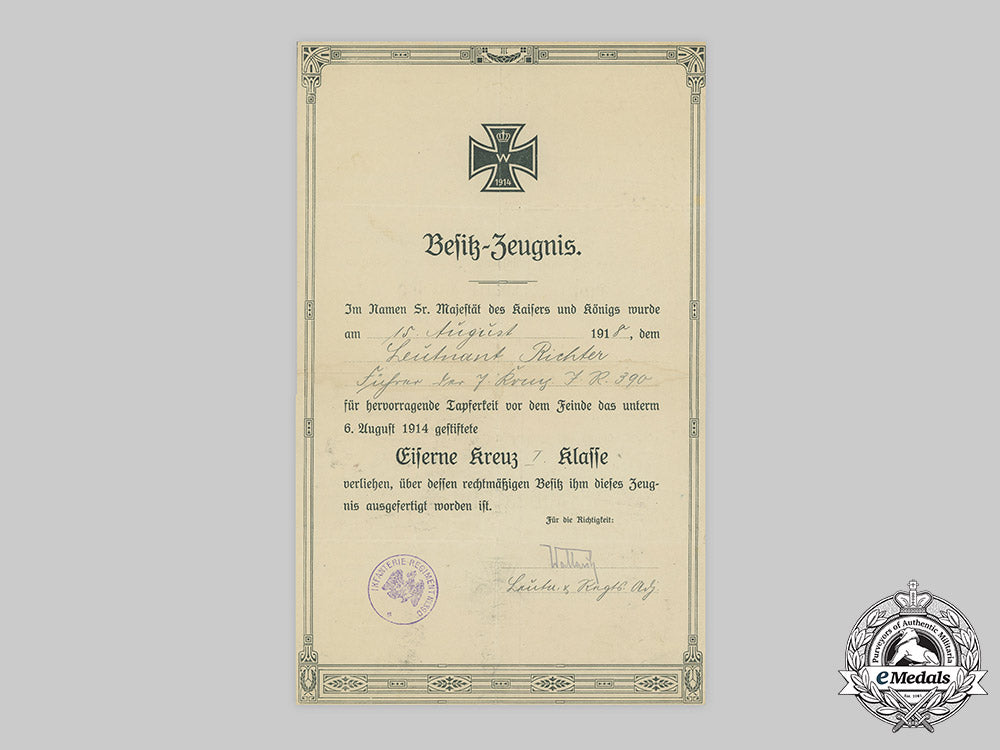 W
1914
Besitz-Zeugnis.
Im Namen Sr. Majestät des Kaisers und Königs wurde
am 15. August 1918, dem
Leutnant Richter
Führer der 7. Komp. I. R. 390
für hervorragende Tapferkeit vor dem Feinde das unterm
6. August 1914 gestiftete
Eiserne Kreuz I. Klasse
verliehen, über dessen rechtmäßigen Besitz ihm dieses Zeug-
nis ausgefertigt worden ist.
Für die Richtigkeit:
Leutn. u. Regts. Adj.
INFANTERIE-REGIMENT No 390
Purveyors of Authentic Militaria
eMedals